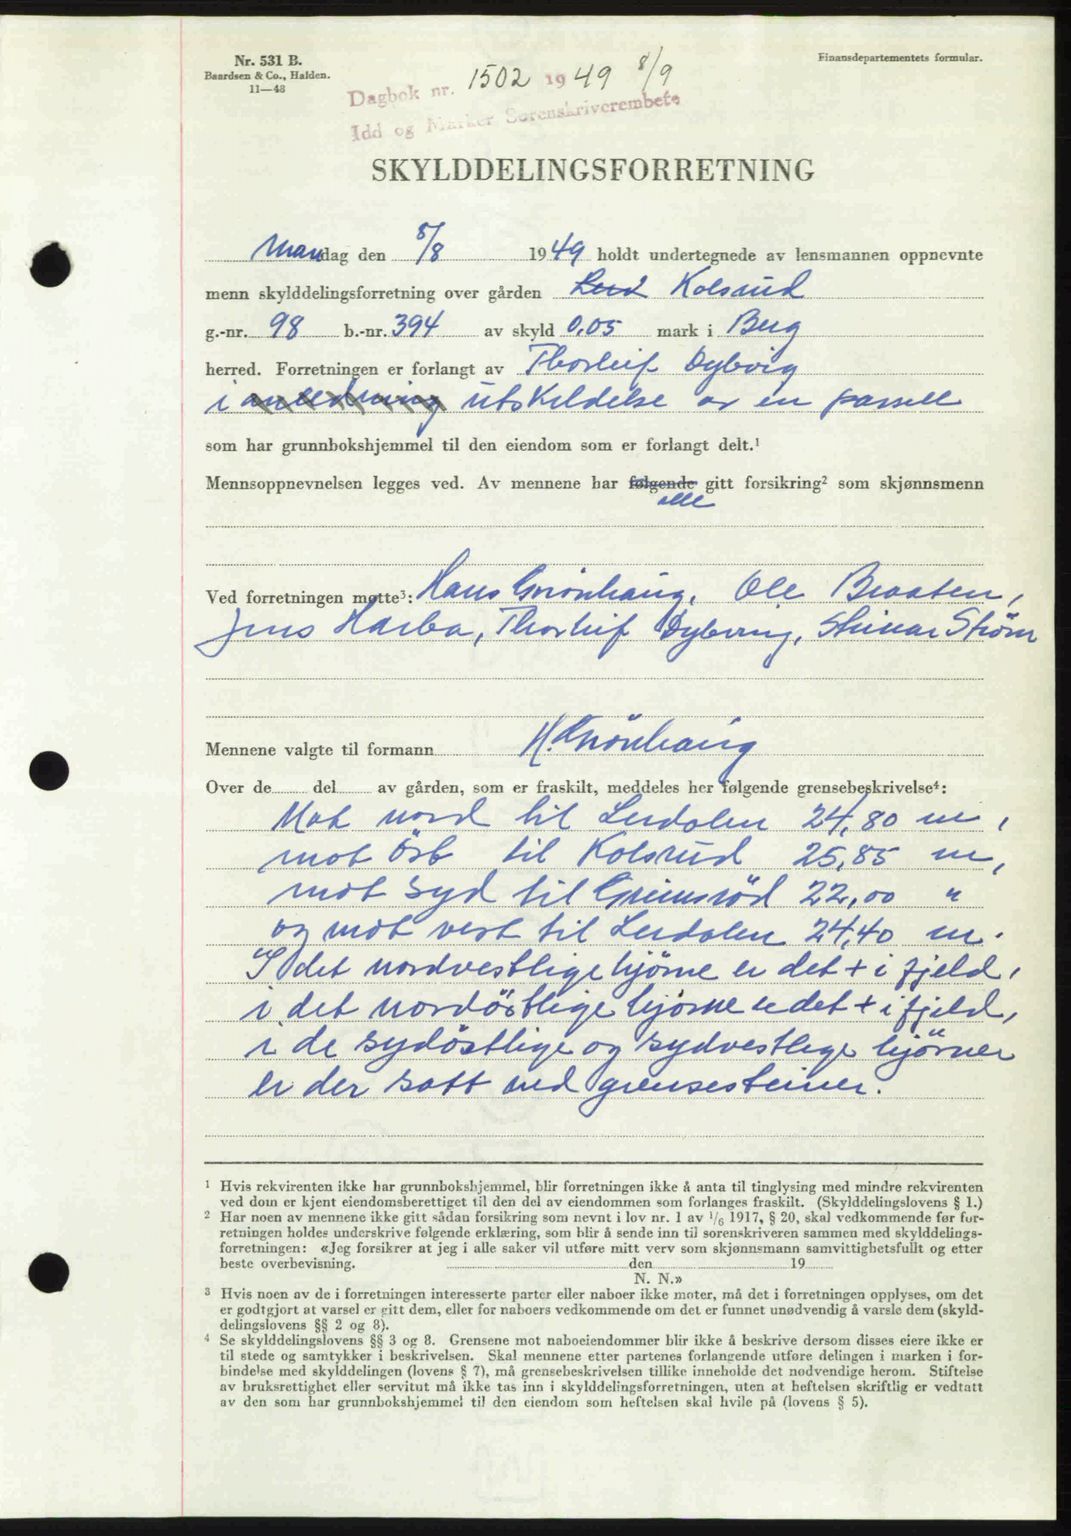 Nr. 531 B.
Baardsen & Co., Halden.
11—48
Finansdepartementets formular.
Dagbok nr. 1502 1949 8/9
Idd og Marker Sorenskriverembete
SKYLDDELINGSFORRETNING
Mandag den 8/8 1949 holdt undertegnede av lensmannen oppnevnte
menn skylddelingsforretning over gården Kolsrud
g.-nr. 98 b.-nr. 394 av skyld 0,05 mark i Berg
herred. Forretningen er forlangt av Thorleif Dybvig
i anledning utskildelse av en parsell
som har grunnbokshjemmel til den eiendom som er forlangt delt.¹
Mennsoppnevnelsen legges ved. Av mennene har følgende gitt forsikring² som skjønnsmenn
alle
Ved forretningen møtte³: Hans Grönhaug, Ole Braaten,
Jens Harba, Thorleif Dybvig, Steinar Ström
Mennene valgte til formann H. Grönhaug
Over de del av gården, som er fraskilt, meddeles her følgende grensebeskrivelse⁴:
Mot nord til Lerdalen 24,80 m,
mot öst til Kolsrud 25,85 m,
mot syd til Grimsröd 22,00 "
og mot vest til Lerdalen 24,40 m.
I det nordvestlige hjörne er det + i fjeld,
i det nordöstlige hjörne er det + i fjeld,
i de sydöstlige og sydvestlige hjörner
er der satt ned grensesteiner.
¹ Hvis rekvirenten ikke har grunnbokshjemmel, blir forretningen ikke å anta til tinglysing med mindre rekvirenten
ved dom er kjent eiendomsberettiget til den del av eiendommen som forlanges fraskilt. (Skylddelingslovens § 1.)
² Har noen av mennene ikke gitt sådan forsikring som nevnt i lov nr. 1 av 1/6 1917, § 20, skal vedkommende før for-
retningen holdes underskrive følgende erklæring, som blir å sende inn til sorenskriveren sammen med skylddelings-
forretningen: «Jeg forsikrer at jeg i alle saker vil utføre mitt verv som skjønnsmann samvittighetsfullt og etter
beste overbevisning. den 19
N. N.»
³ Hvis noen av de i forretningen interesserte parter eller naboer ikke møter, må det i forretningen opplyses, om det
er godtgjort at varsel er gitt dem, eller for naboers vedkommende om det er funnet unødvendig å varsle dem (skyld-
delingslovens §§ 2 og 8).
⁴ Se skylddelingslovens §§ 3 og 8. Grensene mot naboeiendommer blir ikke å beskrive dersom disses eiere ikke er
til stede og samtykker i beskrivelsen. Skal mennene etter partenes forlangende utføre delingen i marken i for-
bindelse med skylddelingen (lovens § 7), må grensebeskrivelsen tillike inneholde det nødvendige herom. Stiftelse
av bruksrettighet eller servitut må ikke tas inn i skylddelingsforretningen, uten at heftelsen skriftlig er vedtatt
av den som har grunnbokshjemmel til den eiendom som heftelsen skal hvile på (lovens § 5).